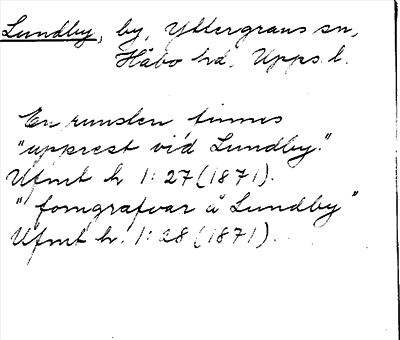 Lundby, by, Yttergrans sn,
Håbo hd, Upps. l.
En runsten finnes
"upprest vid Lundby."
Ufmt h 1: 27 (1871).
"forngrafvar å Lundby"
Ufmt h. 1: 28 (1871).